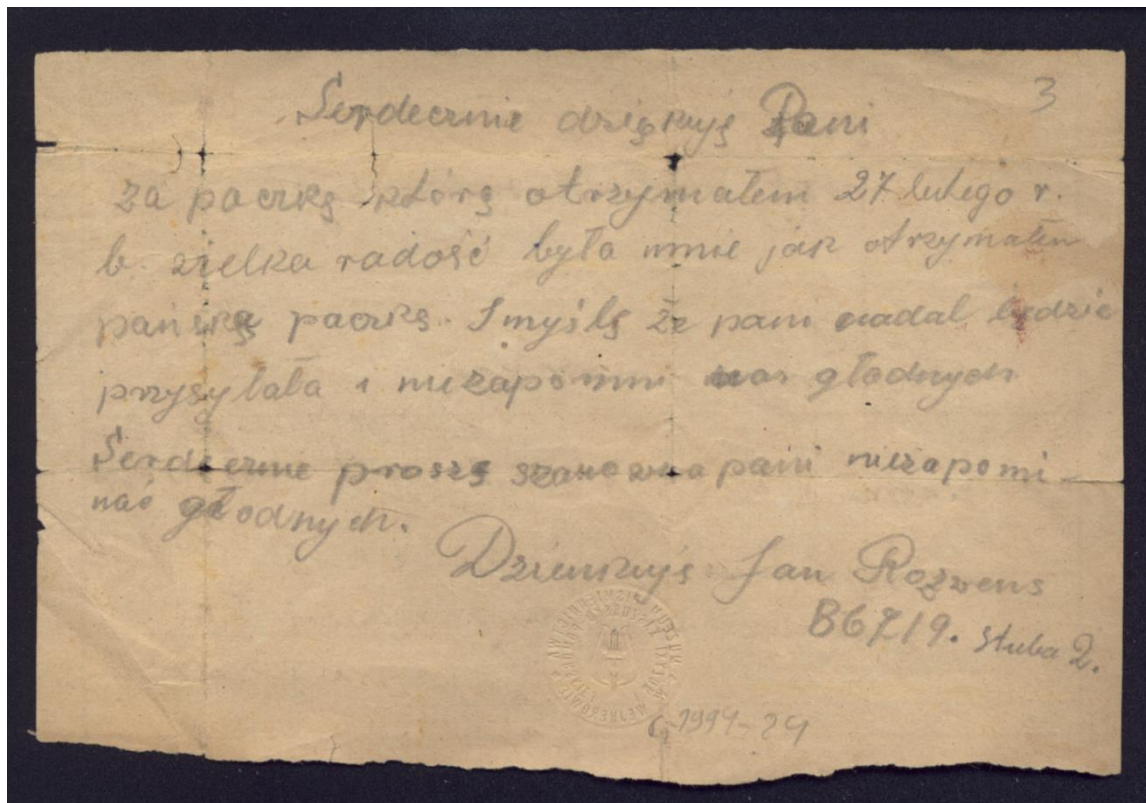 3
Serdecznie dziękuję Pani
za paczkę którą otrzymałem 27 lutego r.
b. wielka radość była mnie jak otrzymałem
pańską paczkę. I myślę że pani nadal będzie
przysyłała i niezapomni nas głodnych
Serdecznie proszę szanowna pani niezapomi-
nać głodnych.
Dzienkuję Jan
B6719. Stuba 2.
1994-24